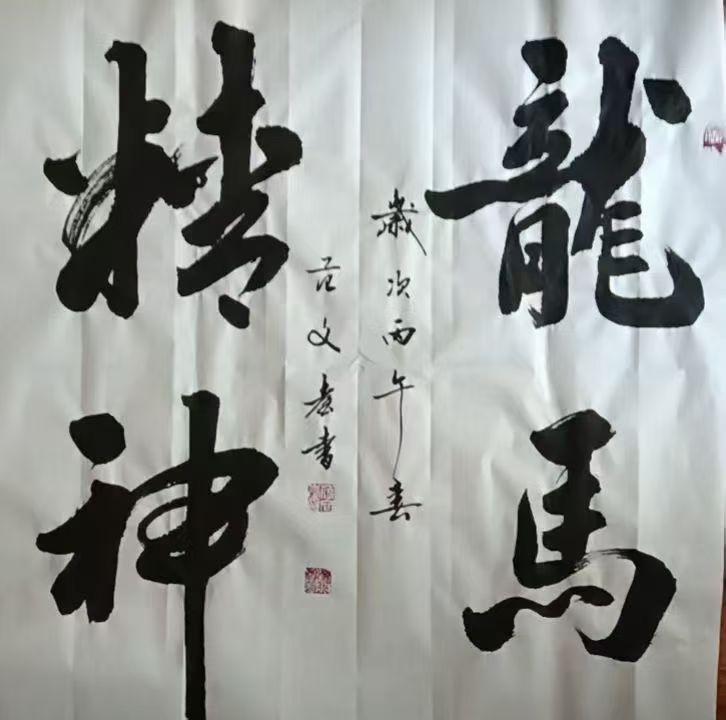 龍馬
精神
歲次丙午春
范文孝書